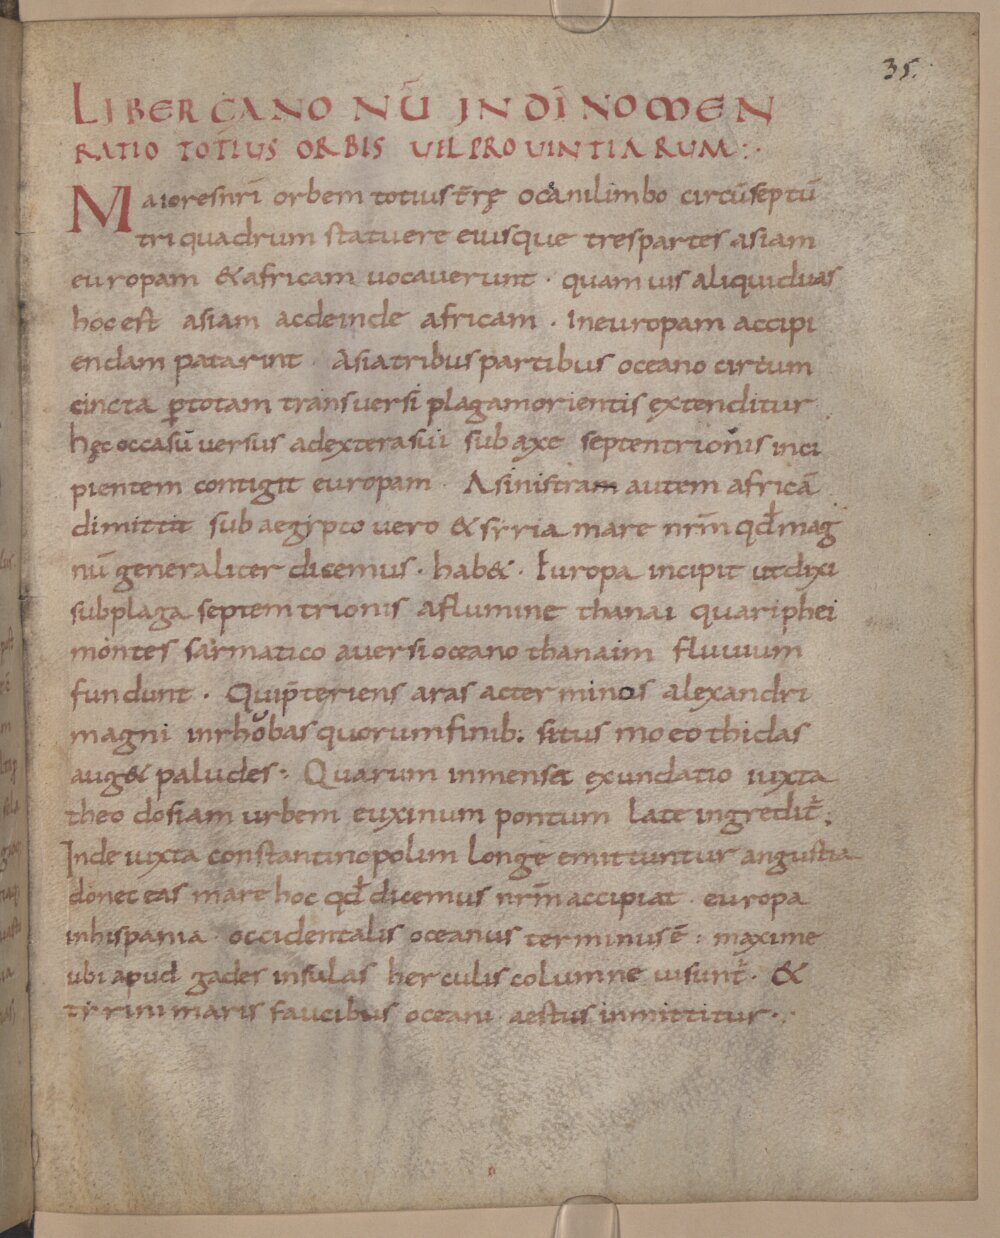 35.
LIBER CANONŪ IN DĪ NOMEN
RATIO TOTIUS ORBIS UEL PROUINTIARUM:·
Maioresnr̄i orbem totius t̄rę oceanilimbo circūseptū
triquadrum statuere eiusque trespartes asiam
europam &africam uocauerunt · quamuis aliquiduas
hocest asiam acdeinde africam · Ineuropam accipi
endam patarint · Asiatribuspartibus oceano circum
cincta ꝑtotam transuersi plagamorientis extenditur
hęc occasū uersus adexterasui sub axe septentrionis inci
pientem contigit europam · Asinistram autem africā
dimittit sub aegipto uero & syria mare nrm̄ qđ mag
nū generaliter dicemus · hab& · Europa incipit utdixi
subplaga septemtrionis aflumine thanai quariphei
montes sarmatico auersi oceano thanaim fluuium
fundunt · Quip̄teriens aras acterminos alexandri
magni inrhobas quorumfinib: situs moeothidas
aug& paludes: Quarum inmensa exundatio iuxta
theodosiam urbem euxinum pontum late ingredit̄.
Inde iuxta constantinopolim longe emittuntur angustia
donec eas mare hoc qđ dicemus nrm̄ accipiat · europa
inhispania · occidentalis oceanus terminus ē : maxime
ubi apud gades insulas herculis columne uisunt̄ · &
tirrini maris faucibus oceani aestus inmittitur ·.